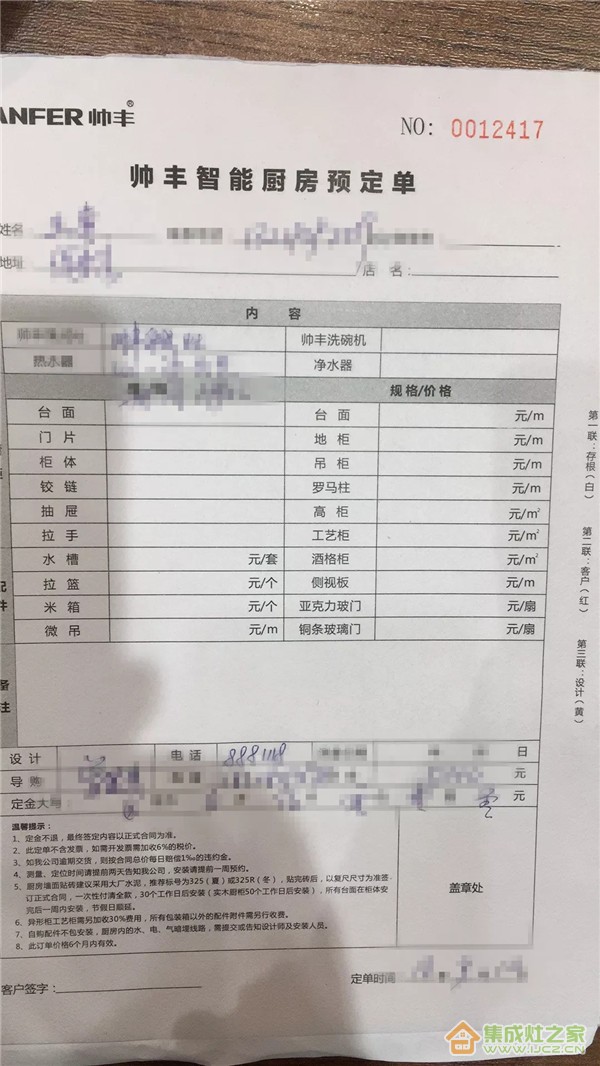 ANFER 帅丰®
NO: 0012417
帅丰智能厨房预定单
姓名
地址 店 名:
内 容
帅丰洗碗机
热水器 净水器
规格/价格
台 面 台 面 元/m
门 片 地 柜 元/m
柜 体 吊 柜 元/m
铰 链 罗马柱 元/m
抽 屉 高 柜 元/m²
拉 手 工艺柜 元/m²
水 槽 元/套 酒格柜 元/m²
拉 篮 元/个 侧视板 元/m
米 箱 元/个 亚克力玻门 元/扇
微 吊 元/m 铜条玻璃门 元/扇
配件
备注
第一联:存根(白) 第二联:客户(红) 第三联:设计(黄)
设 计 电 话 8881118 日
导 购 元
定金大写 元
温馨提示:
1、定金不退，最终签定内容以正式合同为准。
2、此定单不含发票，如需开发票需加收6%的税价。
3、如我公司逾期交货，则按合同总价每日赔偿1‰的违约金。
4、测量、定位时间请提前两天告知我公司，安装请提前一周预约。
5、厨房墙面贴砖建议采用大厂水泥，推荐标号为325（夏）或325R（冬），贴完砖后，以复尺尺寸为准签
订正式合同，一次性付清全款，30个工作日后安装（实木厨柜50个工作日后安装），所有台面在柜体安
完后一周内安装，节假日顺延。
6、异形柜工艺柜需另加收30%费用，所有包装箱以外的配件附件需另行收费。
7、自购配件不包安装，厨房内的水、电、气暗埋线路，需提交或告知设计师及安装人员。
8、此订单价格6个月内有效。
盖章处
定单时间
客户签字:
集成灶之家
WWW.IJCZ.CN